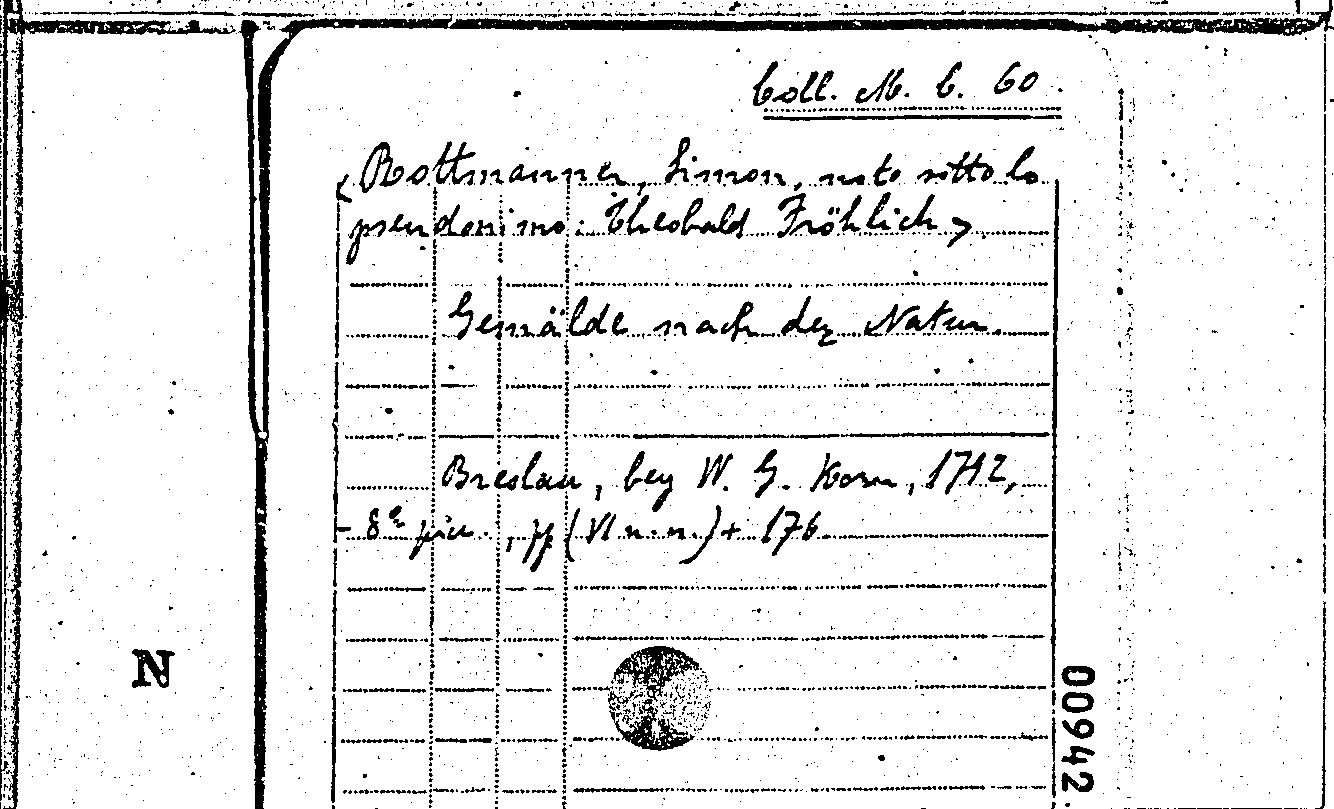 Coll. M. C. 60.
<Rottmanner, Simon, noto sotto lo
pseudonimo: Theobald Fröhlich>
Gemälde nach der Natur.
Breslau, bey W. G. Korn, 1712,
- 8° picc., pp (VI n.n.) + 176
N
00942